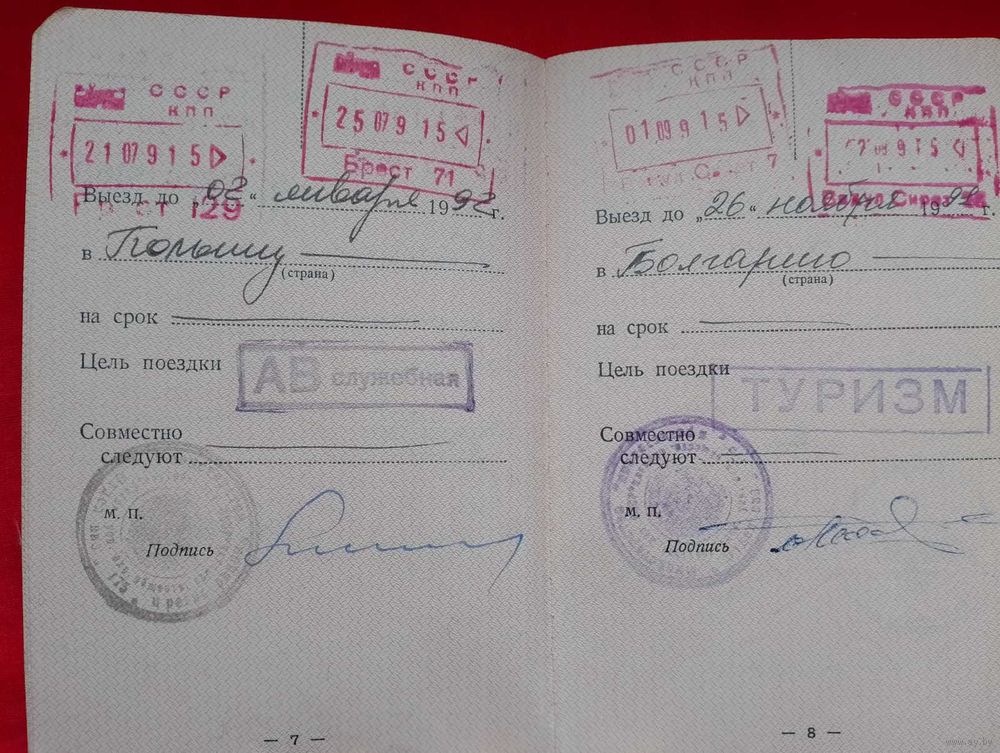 СССР
КПП
21 07 91 5
Брест 129
СССР
КПП
25 07 91 5
Брест 71
Выезд до „02“ января 1992 г.
в Польшу
(страна)
на срок
Цель поездки
АВ служебная
Совместно
следуют
м. п.
Подпись
— 7 —
СССР
КПП
01 09 91 5
7
СССР
КПП
91 5
Вадул-Сирет
Выезд до „26“ ноября 1991 г.
в Болгарию
(страна)
на срок
Цель поездки
ТУРИЗМ
Совместно
следуют
м. п.
Подпись
— 8 —
www.ay.by